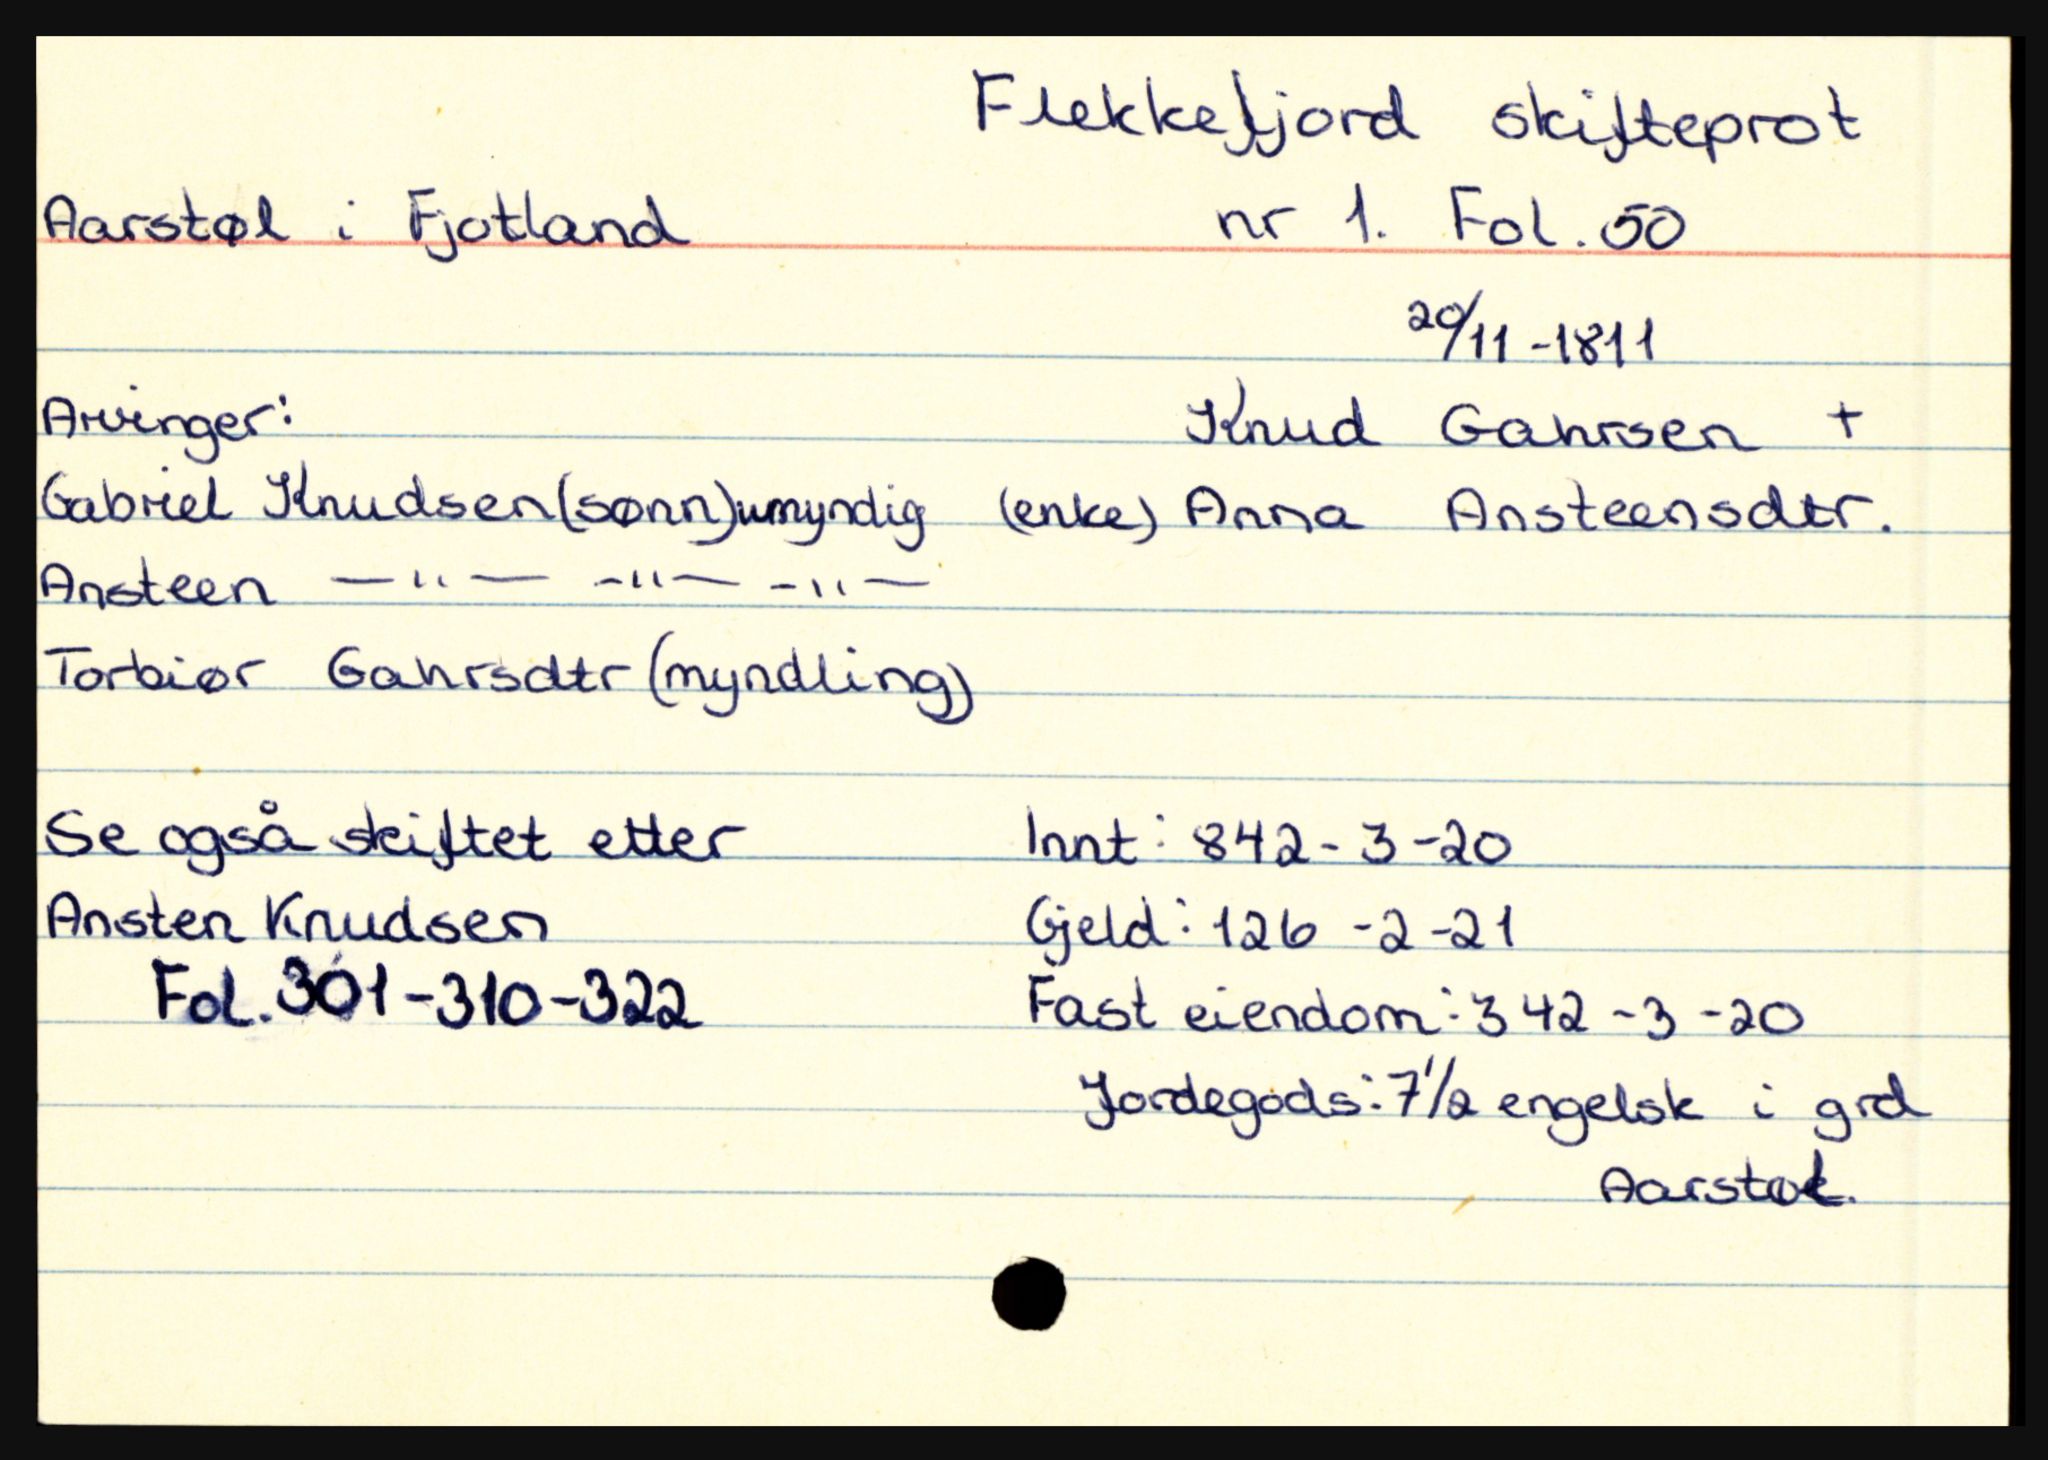 Flekkefjord skifteprot
Aarstøl i Fjotland nr 1. Fol. 50
20/11-1811
Arvinger: Knud Gahrsen +
Gabriel Knudsen (sønn) umyndig (enke) Anna Ansteensdtr.
Ansteen —"— —"— —"—
Torbiør Gahrsdtr (myndling)
Se også skiftet etter Innt: 842-3-20
Ansten Knudsen Gjeld: 126-2-21
Fol. 301-310-322 Fast eiendom: 342-3-20
Jordegods: 7 1/2 engelsk i grd
Aarstøl.